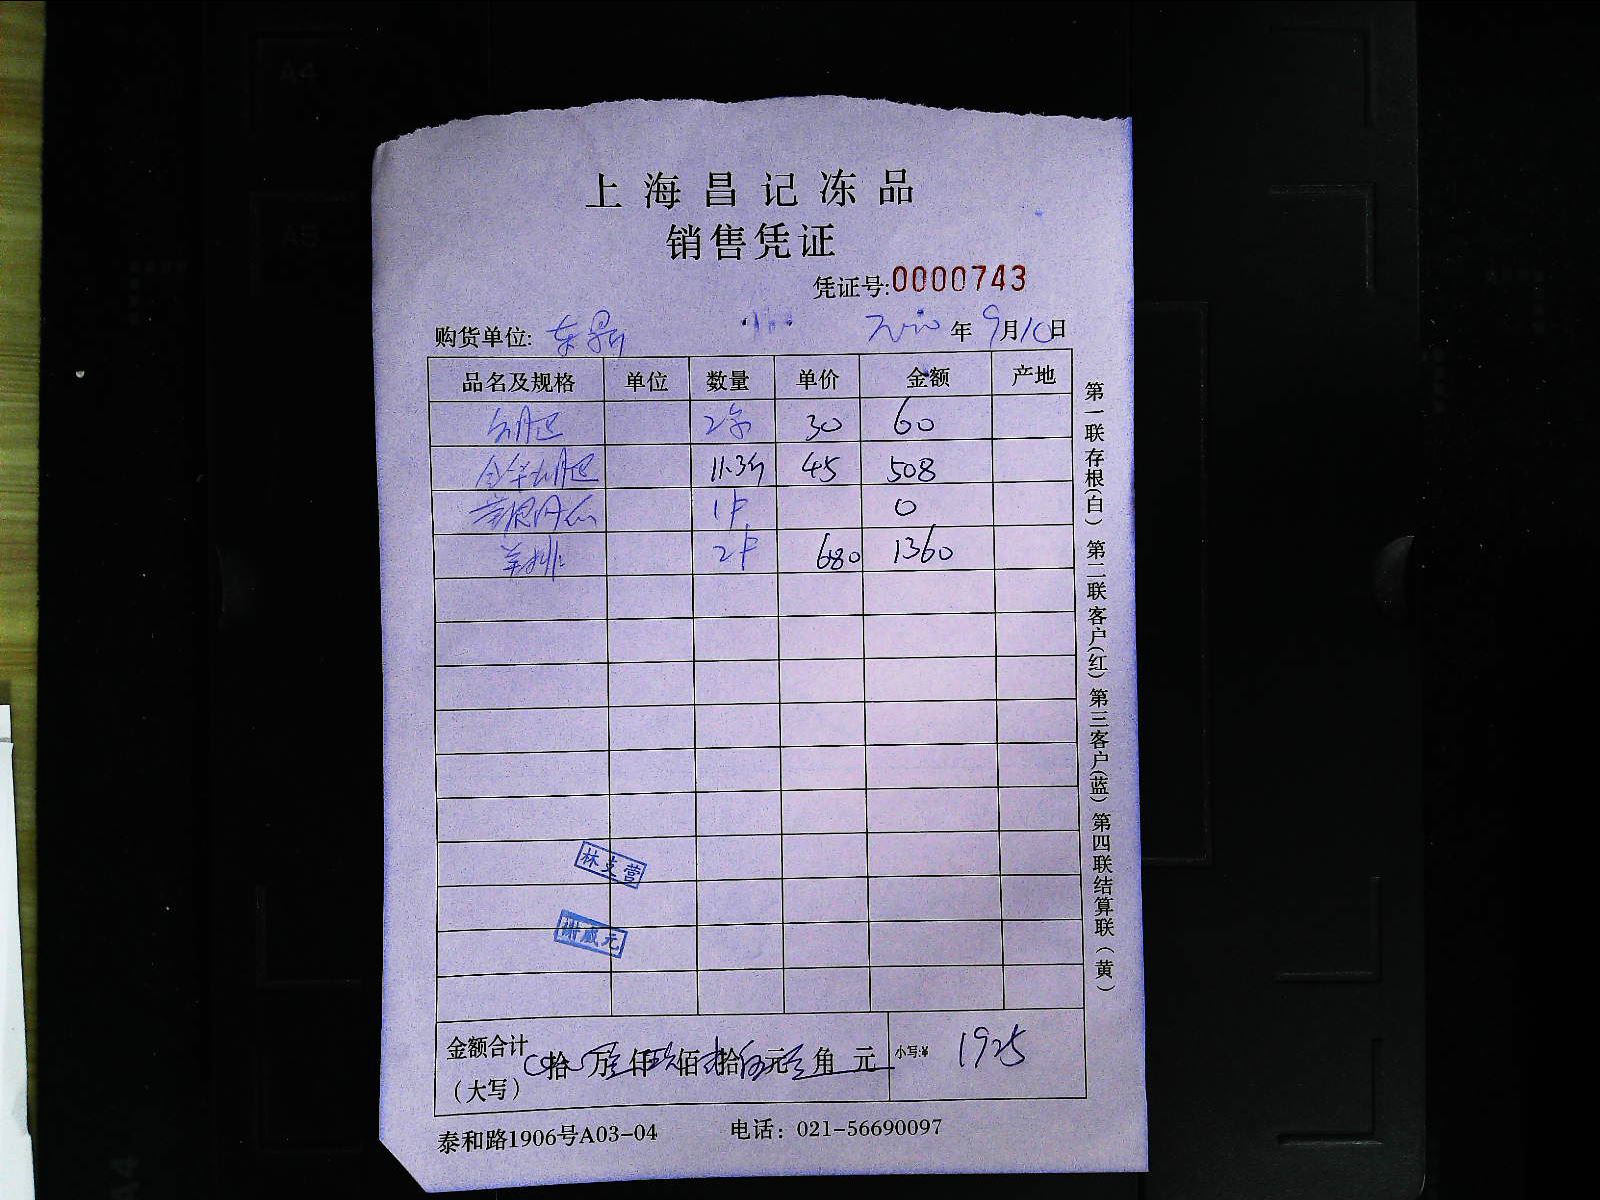 上海昌记冻品
销售凭证
凭证号:0000743
购货单位: 东 年 9月10日
品名及规格 单位 数量 单价 金额 产地
2 30 60
11.3斤 45 508
1 0
羊排 2 680 1360
林支营
谢威元
金额合计 拾 万 仟 佰 拾 元 角 元 小写:¥ 1925
(大写)
泰和路1906号A03-04 电话: 021-56690097
第一联存根(白) 第二联客户(红) 第三客户(蓝) 第四联结算联(黄)
A4
A5
A4